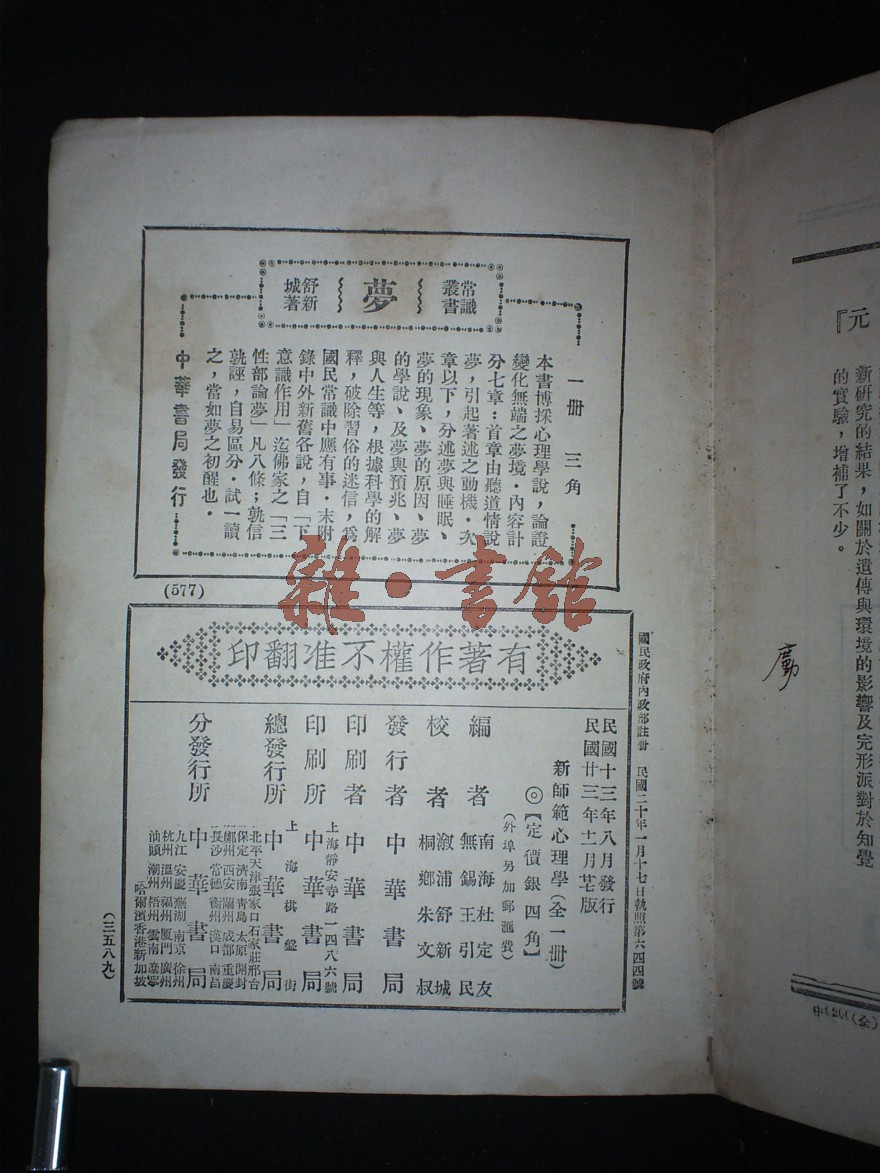 常識
叢書
夢
舒新
城著
一冊 三角
本書博採心理學說，論證
變化無端之夢境．內容計
分七章：首章由聽道情說
夢，引起著述之動機．次
章以下，分述夢與睡眠、
夢的現象、夢的原因、夢
的學說、及夢與預兆、夢
與人生等，根據科學的解
釋，破除習俗的迷信，爲
國民常識中應有事．末附
錄中外新舊各說，自「下
意識作用」迄佛家之「三
性部論夢」凡八條；孰信
孰誣，自易區分．試一讀
之，當如夢之初醒也．
中華書局發行
(577)
雜·書館
有著作權不准翻印
國民政府內政部註冊 民國二十年一月十七日執照第六四四號
民國十三年八月發行
民國廿三年十二月廿七版
新師範心理學（全一冊）
◎【定價銀四角】
（外埠另加郵滙費）
編者 南海杜定友
無錫王引民
校者 漵浦舒新城
桐鄉朱文叔
發行者 中華書局
印刷者 中華書局
上海靜安寺路一四八六號
印刷所 中華書局
上海棋盤街
總發行所 中華書局
分發行所 中華書局
北平天津張家口石家莊邢台
保定濟南青島太原開封
鄭州西安蘭州成都重慶
長沙常德衡州漢口南昌
九江安慶蕪湖南京徐州
杭州溫州福州廈門廣州
汕頭潮州梧州雲南遼寧
哈爾濱香港新加坡
（三五八九）
『元
新研究的結果，如關於遺傳與環境的影響及完形派對於知覺
的實驗，增補了不少。